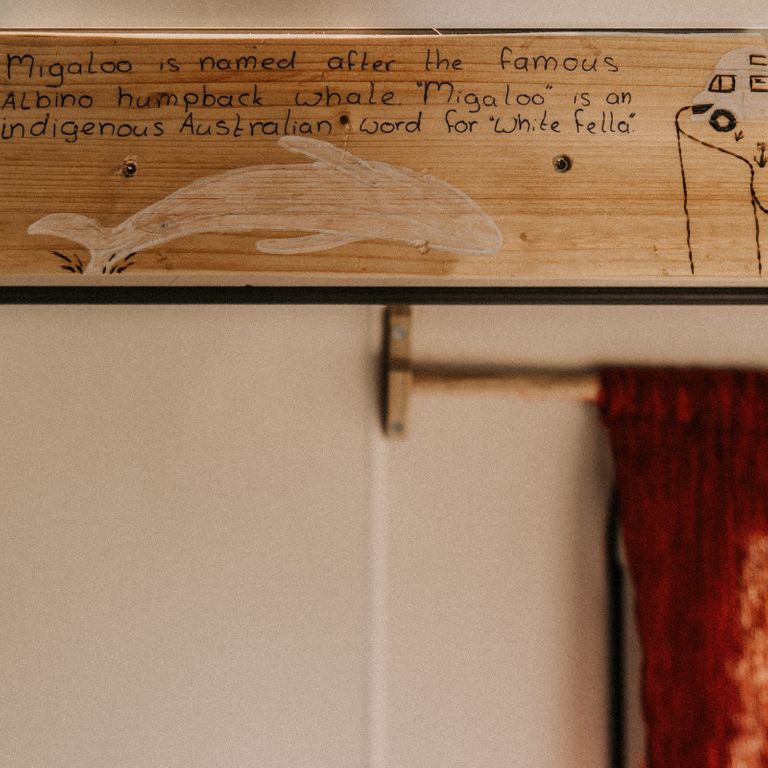 Migaloo is named after the famous
Albino humpback whale. "Migaloo" is an
indigenous Australian word for "white fella".